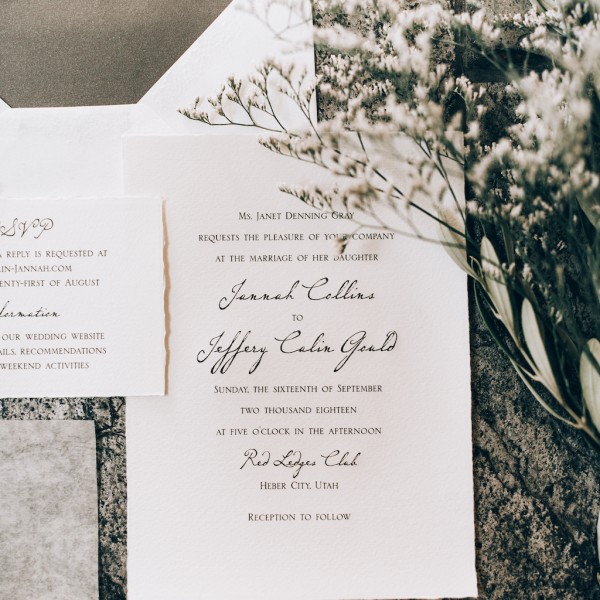 RSVP
A REPLY IS REQUESTED AT
LIN-JANNAH.COM
ENTY-FIRST OF AUGUST
formation
OUR WEDDING WEBSITE
AILS, RECOMMENDATIONS
WEEKEND ACTIVITIES
Ms. Janet Denning Gray
REQUESTS THE PLEASURE OF YOUR COMPANY
AT THE MARRIAGE OF HER DAUGHTER
Jannah Collins
TO
Jeffery Calin Gould
Sunday, the sixteenth of September
two thousand eighteen
at five o'clock in the afternoon
Red Ledges Club
Heber City, Utah
Reception to follow